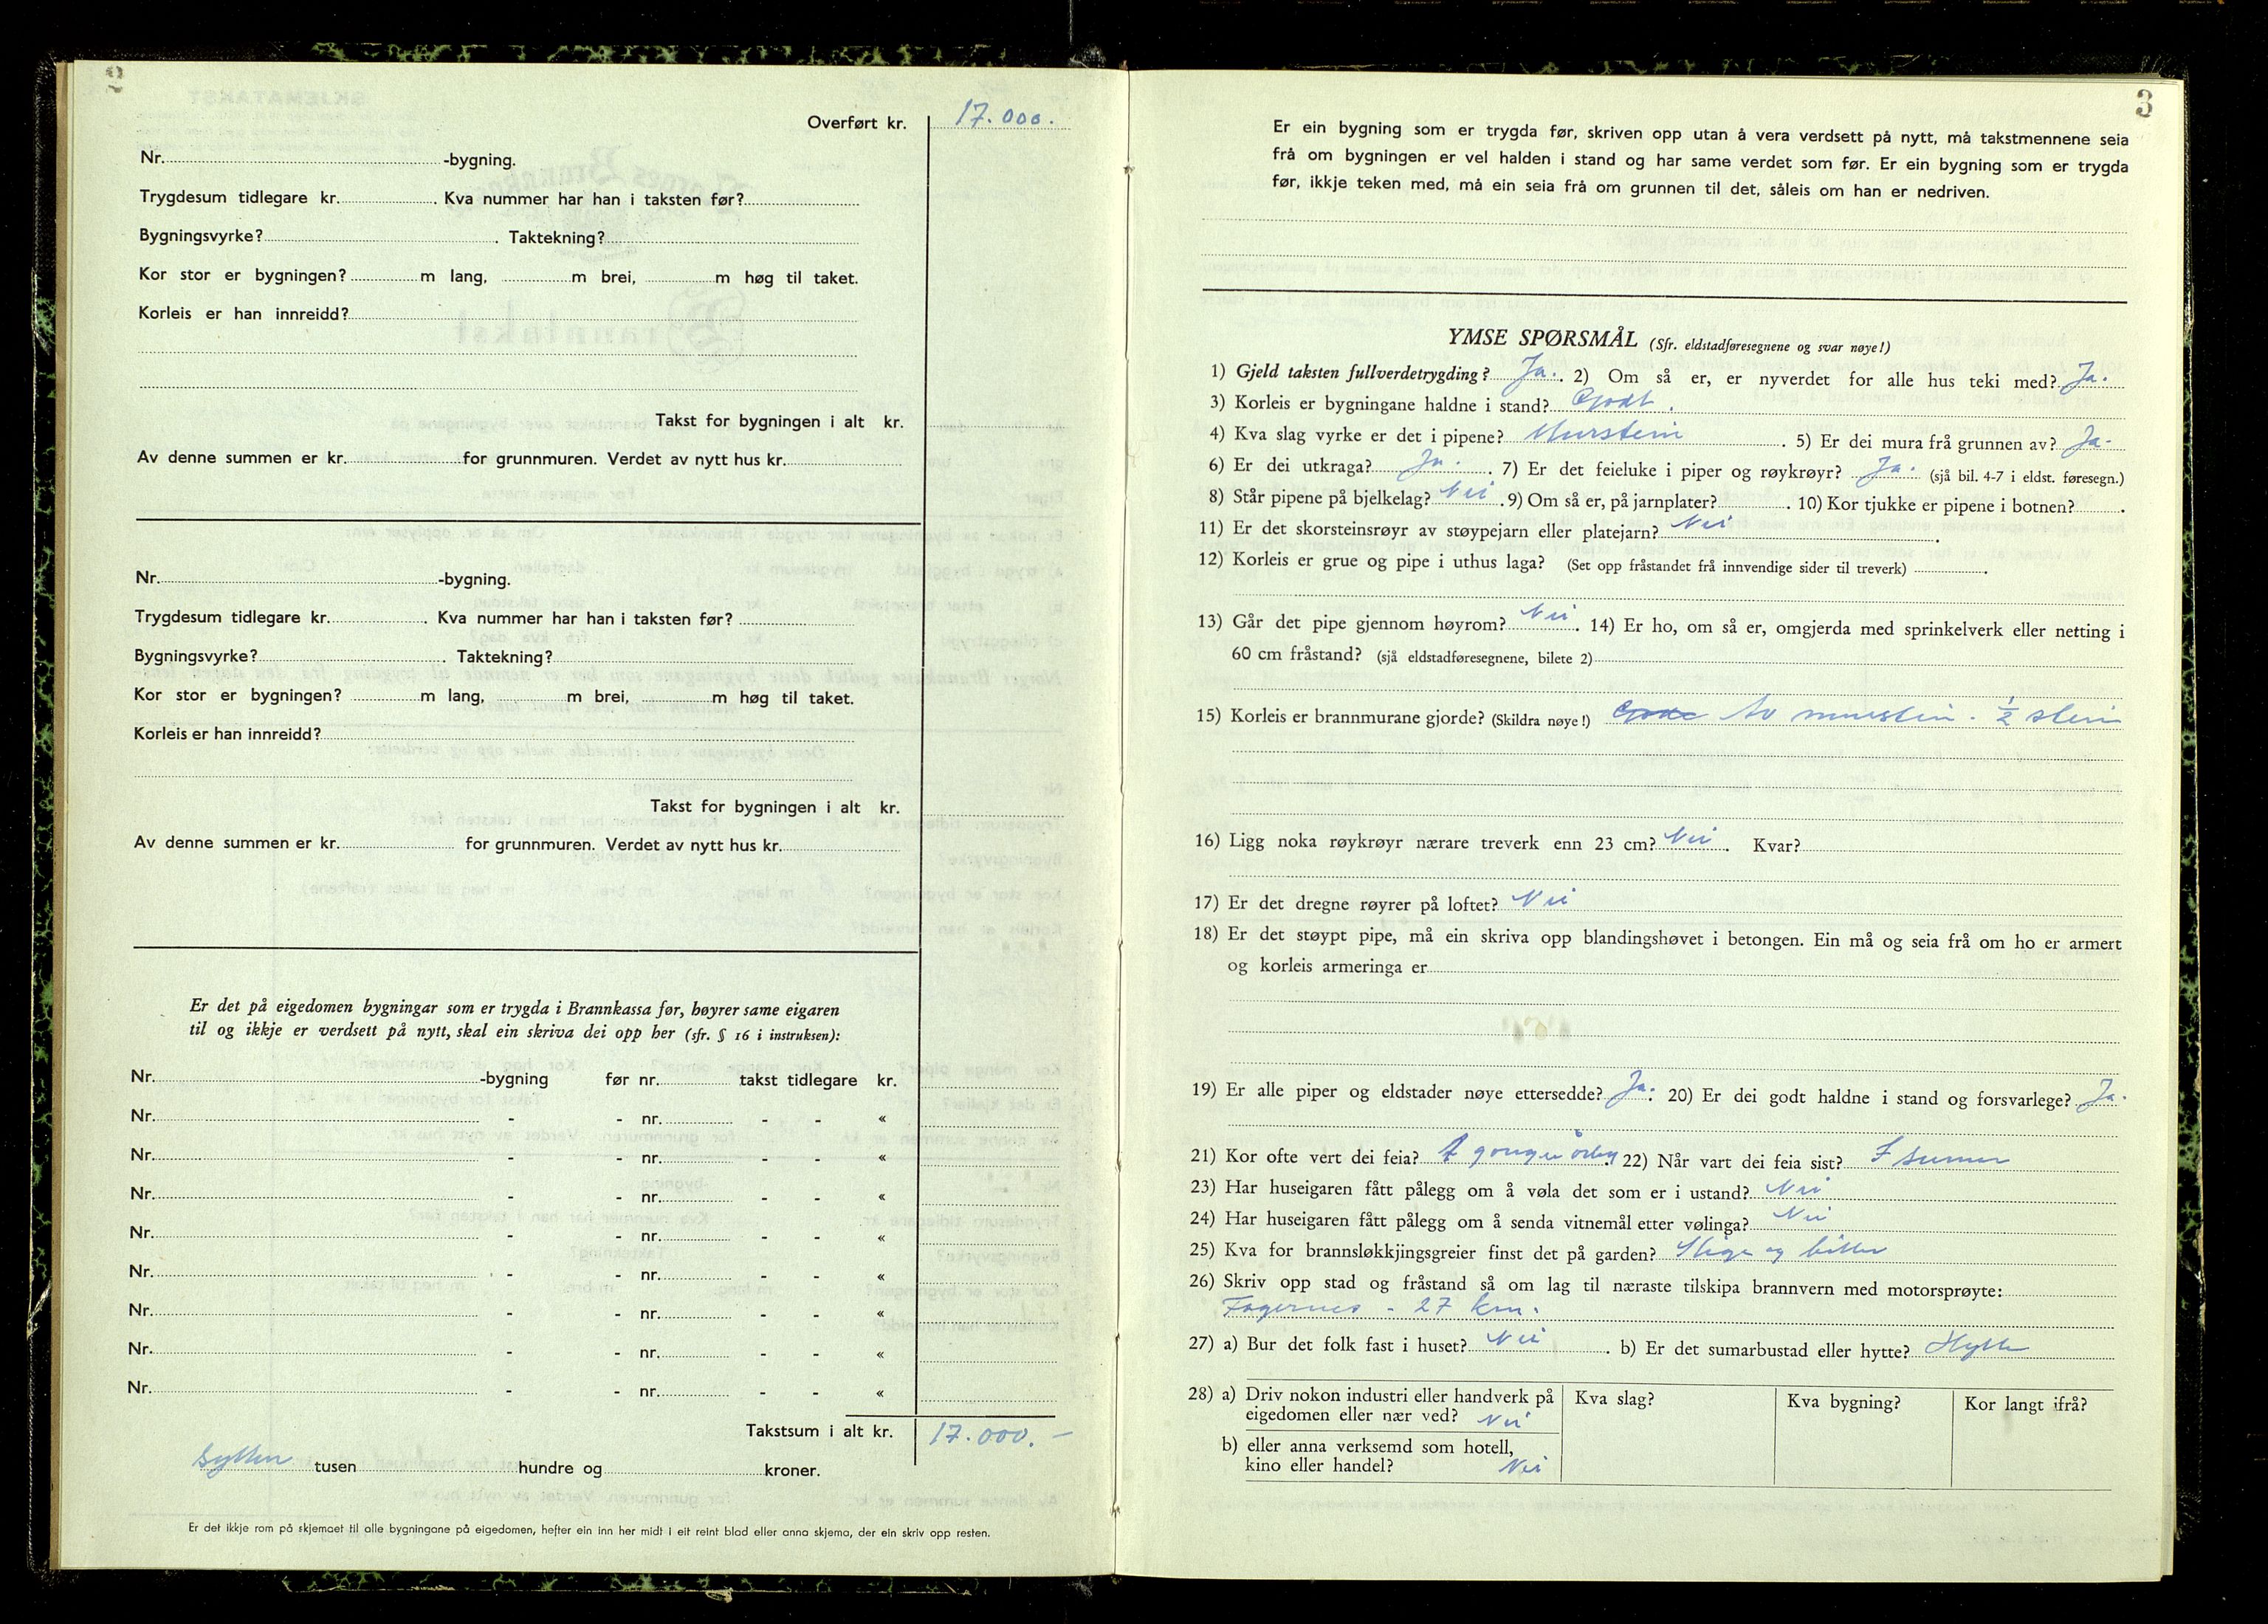 2
Overført kr. 17.000.
Nr. -bygning.
Trygdesum tidlegare kr. . Kva nummer har han i taksten før?
Bygningsvyrke? . Taktekning?
Kor stor er bygningen? m lang, m brei, m høg til taket.
Korleis er han innreidd?
Takst for bygningen i alt kr.
Av denne summen er kr. for grunnmuren. Verdet av nytt hus kr.
Nr. -bygning.
Trygdesum tidlegare kr. . Kva nummer har han i taksten før?
Bygningsvyrke? . Taktekning?
Kor stor er bygningen? m lang, m brei, m høg til taket.
Korleis er han innreidd?
Takst for bygningen i alt kr.
Av denne summen er kr. for grunnmuren. Verdet av nytt hus kr.
Er det på eigedomen bygningar som er trygda i Brannkassa før, høyrer same eigaren
til og ikkje er verdsett på nytt, skal ein skriva dei opp her (sfr. § 16 i instruksen):
Nr. -bygning før nr. takst tidlegare kr.
Nr. - - nr. - - «
Nr. - - nr. - - «
Nr. - - nr. - - «
Nr. - - nr. - - «
Nr. - - nr. - - «
Nr. - - nr. - - «
Nr. - - nr. - - «
Nr. - - nr. - - «
Takstsum i alt kr. 17.000.-
Sytten tusen hundre og kroner.
Er det ikkje rom på skjemaet til alle bygningane på eigedomen, hefter ein inn her midt i eit reint blad eller anna skjema, der ein skriv opp resten.
3
Er ein bygning som er trygda før, skriven opp utan å vera verdsett på nytt, må takstmennene seia
frå om bygningen er vel halden i stand og har same verdet som før. Er ein bygning som er trygda
før, ikkje teken med, må ein seia frå om grunnen til det, såleis om han er nedriven.
YMSE SPØRSMÅL (Sfr. eldstadføresegnene og svar nøye!)
1) Gjeld taksten fullverdetrygding? Ja. 2) Om så er, er nyverdet for alle hus teki med? Ja.
3) Korleis er bygningane haldne i stand? Godt.
4) Kva slag vyrke er det i pipene? Murstein . 5) Er dei mura frå grunnen av? Ja.
6) Er dei utkraga? Ja. . 7) Er det feieluke i piper og røykrøyr? Ja. (sjå bil. 4-7 i eldst. føresegn.)
8) Står pipene på bjelkelag? Nei . 9) Om så er, på jarnplater? . 10) Kor tjukke er pipene i botnen? .
11) Er det skorsteinsrøyr av støypejarn eller platejarn? Nei .
12) Korleis er grue og pipe i uthus laga? (Set opp fråstandet frå innvendige sider til treverk) .
13) Går det pipe gjennom høyrom? Nei . 14) Er ho, om så er, omgjerda med sprinkelverk eller netting i
60 cm fråstand? (sjå eldstadføresegnene, bilete 2)
15) Korleis er brannmurane gjorde? (Skildra nøye!) Av murstein. ½ stein
16) Ligg noka røykrøyr nærare treverk enn 23 cm? Nei . Kvar?
17) Er det dregne røyrer på loftet? Nei
18) Er det støypt pipe, må ein skriva opp blandingshøvet i betongen. Ein må og seia frå om ho er armert
og korleis armeringa er
19) Er alle piper og eldstader nøye ettersedde? Ja. 20) Er dei godt haldne i stand og forsvarlege? Ja.
21) Kor ofte vert dei feia? 22) Når vart dei feia sist? I sumar
23) Har huseigaren fått pålegg om å vøla det som er i ustand? Nei
24) Har huseigaren fått pålegg om å senda vitnemål etter vølinga? Nei
25) Kva for brannsløkkjingsgreier finst det på garden? Stige og bøtter
26) Skriv opp stad og fråstand så om lag til næraste tilskipa brannvern med motorsprøyte:
Fagernes - 27 km.
27) a) Bur det folk fast i huset? Nei . b) Er det sumarbustad eller hytte? Hytte
28) a) Driv nokon industri eller handverk på Kva slag? Kva bygning? Kor langt ifrå?
eigedomen eller nær ved? Nei
b) eller anna verksemd som hotell,
kino eller handel? Nei